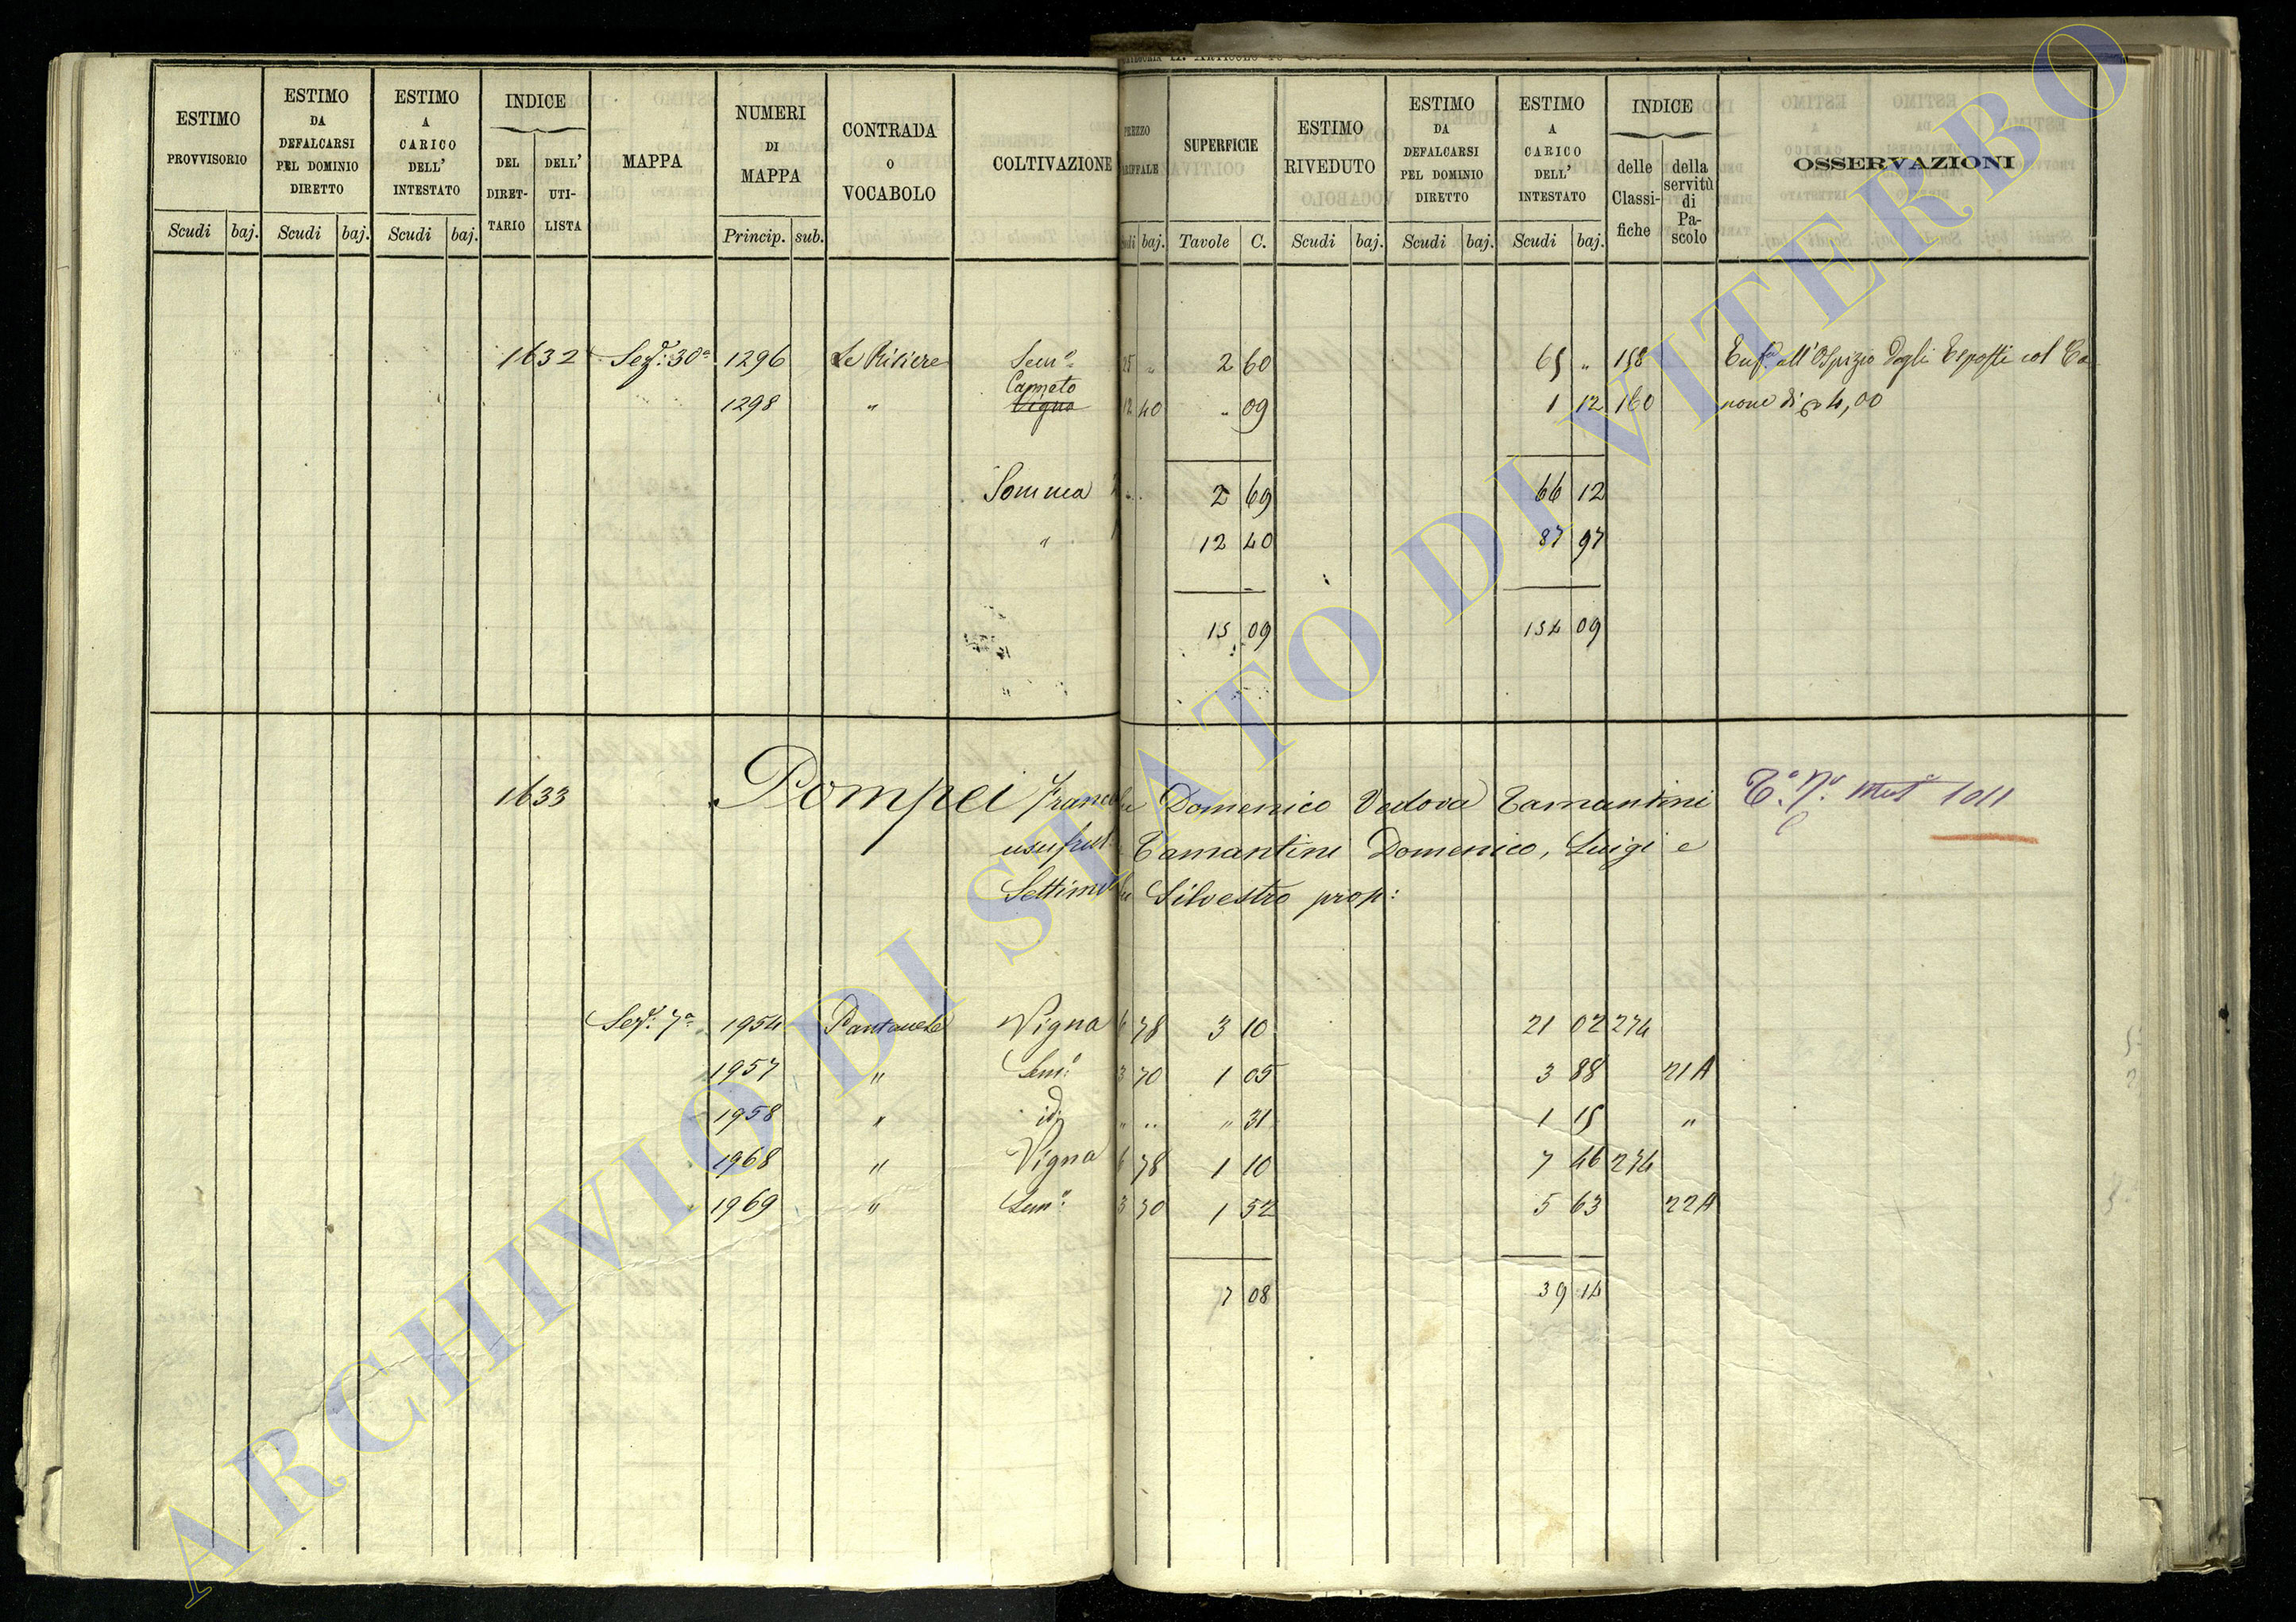 ESTIMO PROVVISORIO | ESTIMO DA DEFALCARSI PEL DOMINIO DIRETTO | ESTIMO A CARICO DELL' INTESTATO | INDICE | MAPPA | NUMERI DI MAPPA | CONTRADA O VOCABOLO | COLTIVAZIONE | PREZZO | SUPERFICIE | ESTIMO RIVEDUTO | ESTIMO DA DEFALCARSI PEL DOMINIO DIRETTO | ESTIMO A CARICO DELL' INTESTATO | INDICE | OSSERVAZIONI
DEL DIRETTARIO | DELL' UTILISTA | delle Classifiche | della servitù di Pascolo
Scudi | baj. | Scudi | baj. | Scudi | baj. | Princip. | sub. | baj. | Tavole | C. | Scudi | baj. | Scudi | baj. | Scudi | baj.
1632 Seze: 30a 1296 Semo 25 " 2 60 65 " 158 all'Ospizio degli Esposti col Ca
Canneto
1298 " Vigna 12 40 " 09 1 12 160 none di 4,00
Somma 2 69 66 12
" 12 40 87 97
15 09 154 09
1633 Pompei Domenico Vedova Tamantini 1011
usufrut: Tamantini Domenico, Luigi e
Silvestro prop:
Seze: 7a 1954 Vigna 6 78 3 10 21 02 274
1957 " Semo: 3 70 1 05 3 88 21A
1958 " id: " " " 31 1 15 "
1968 " Vigna 6 78 1 10 7 46 274
1969 " Semo: 3 70 1 52 5 63 22A
7 08 39 14
ARCHIVIO DI STATO DI VITERBO